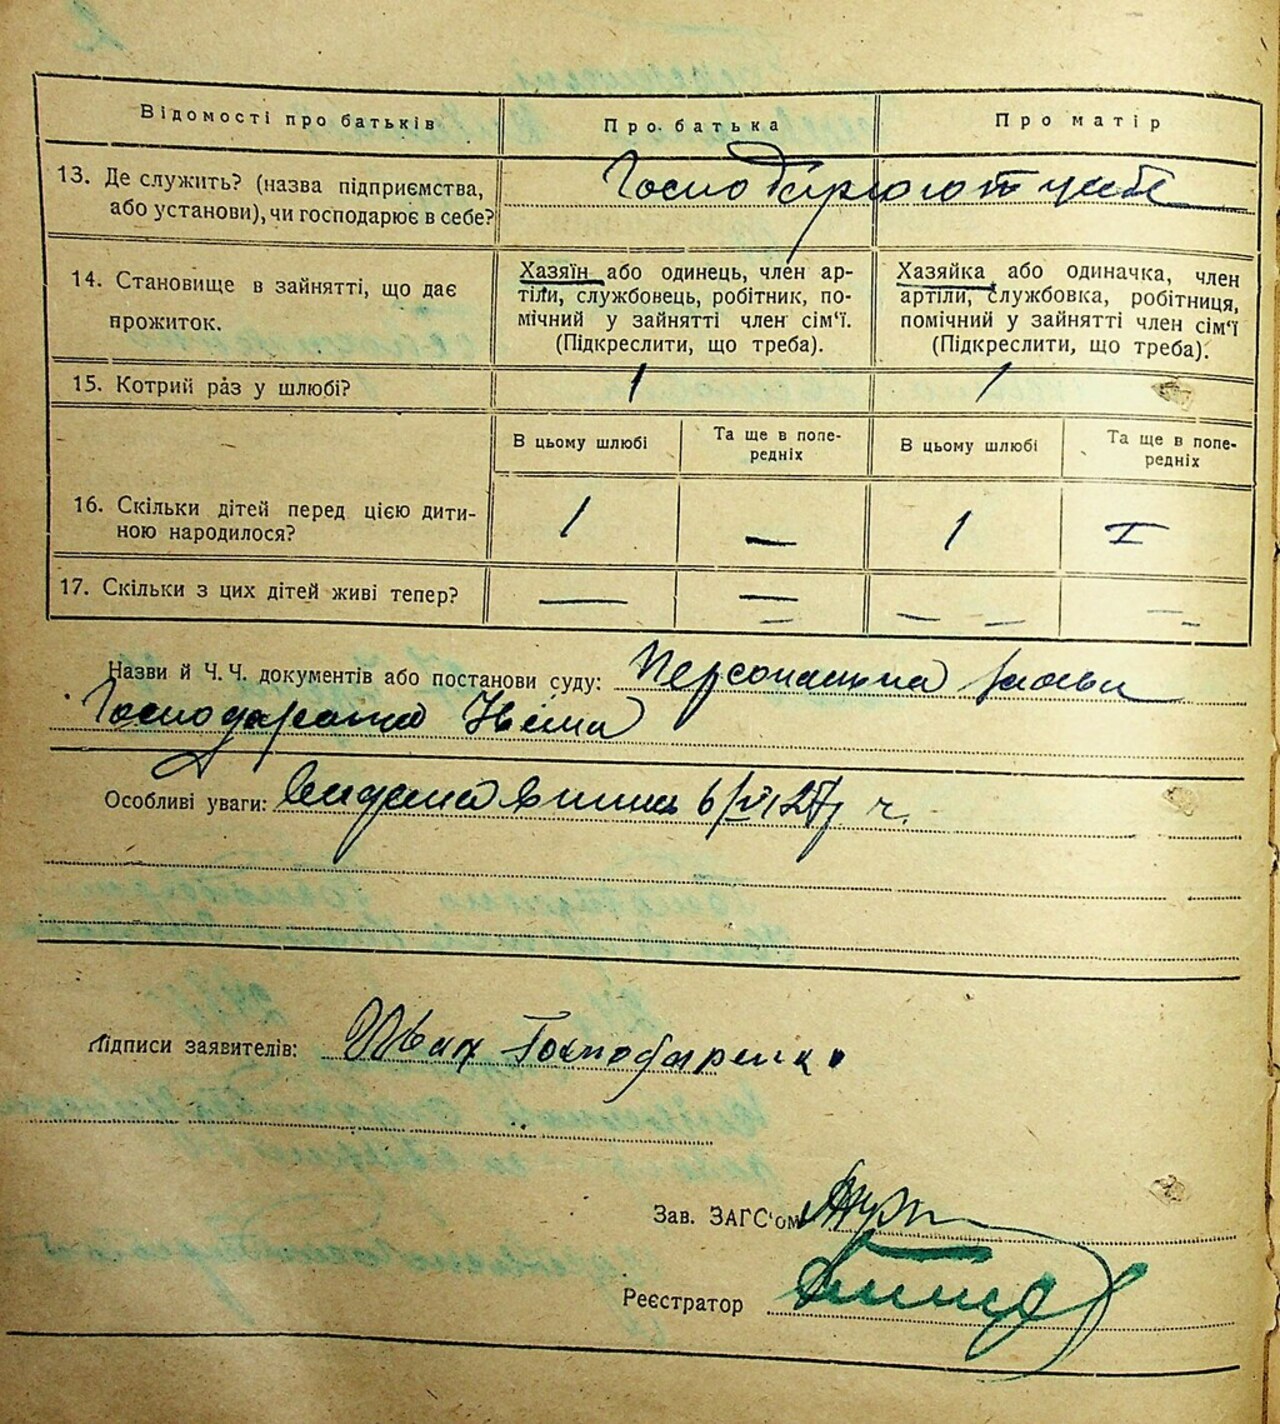 Відомості про батьків
Про батька
Про матір
13. Де служить? (назва підприємства,
або установи), чи господарює в себе?
Господарюют у себе
14. Становище в зайнятті, що дає
прожиток.
Хазяїн або одинець, член ар-
тіли, службовець, робітник, по-
мічний у зайнятті член сім'ї.
(Підкреслити, що треба).
Хазяйка або одиначка, член
артіли, службовка, робітниця,
помічний у зайнятті член сім'ї
(Підкреслити, що треба).
15. Котрий раз у шлюбі?
1
1
В цьому шлюбі
Та ще в попе-
редніх
В цьому шлюбі
Та ще в попе-
редніх
16. Скільки дітей перед цією дити-
ною народилося?
1
—
1
17. Скільки з цих дітей живі тепер?
—
—
— —
Назви й Ч. Ч. документів або постанови суду: Персональна
Господаренка Івана
Особливі уваги: Видана 6/VI 27 р.
Підписи заявителів: Иван Господаренко
Зав. ЗАГС'ом
Реєстратор